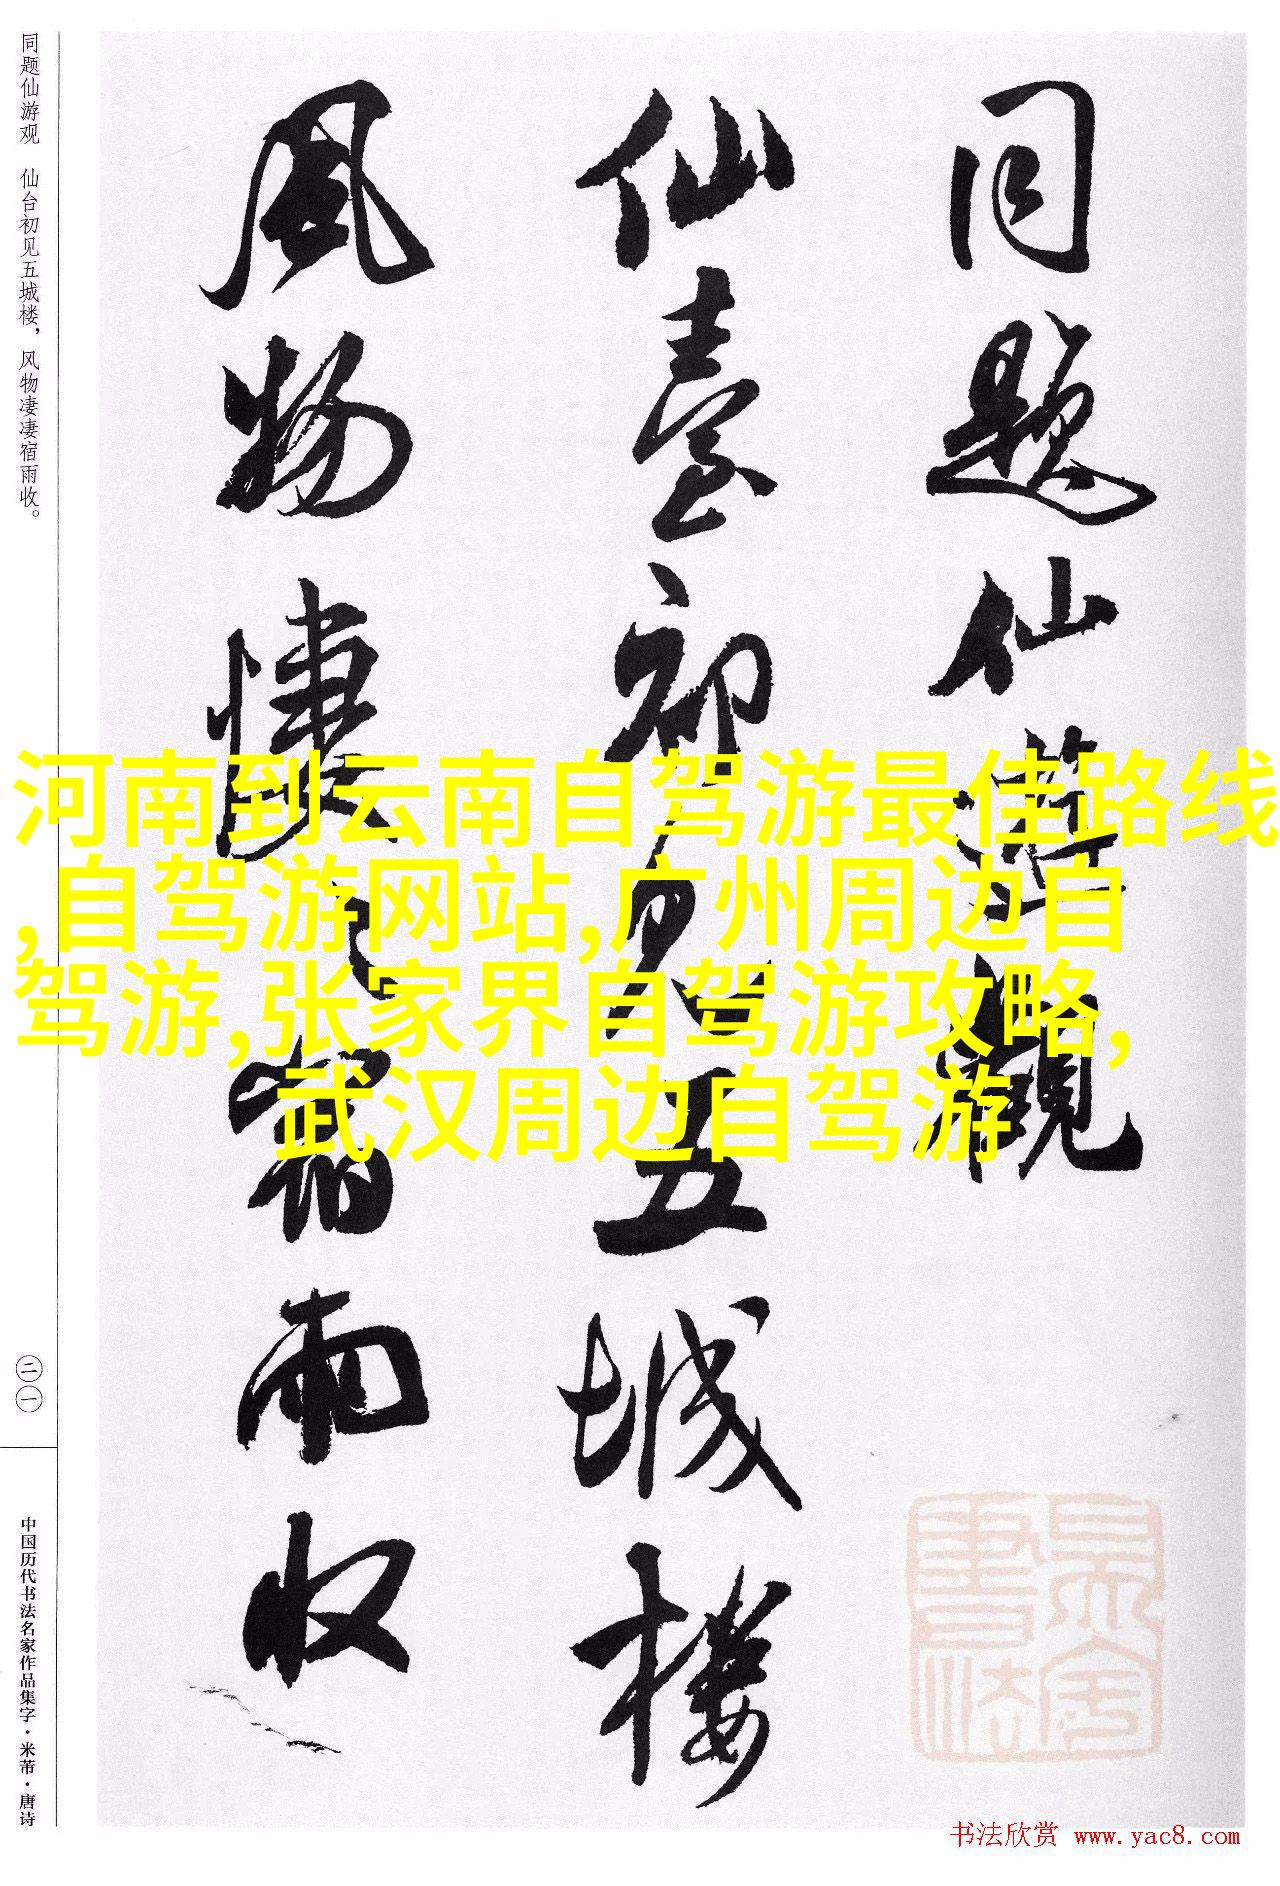 同题仙游观
仙臺初见五城楼
風物悽〻宿雨收
河南到云南自驾游最佳路线
,自驾游网站,广州周边自
驾游,张家界自驾游攻略,
武汉周边自驾游
同题仙游观 仙台初见五城楼，风物凄凄宿雨收。
二一
中国历代书法名家作品集字·米芾·唐诗
书法欣赏 www.yac8.com